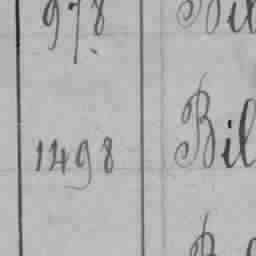 978 Bil
1498 Bil
B